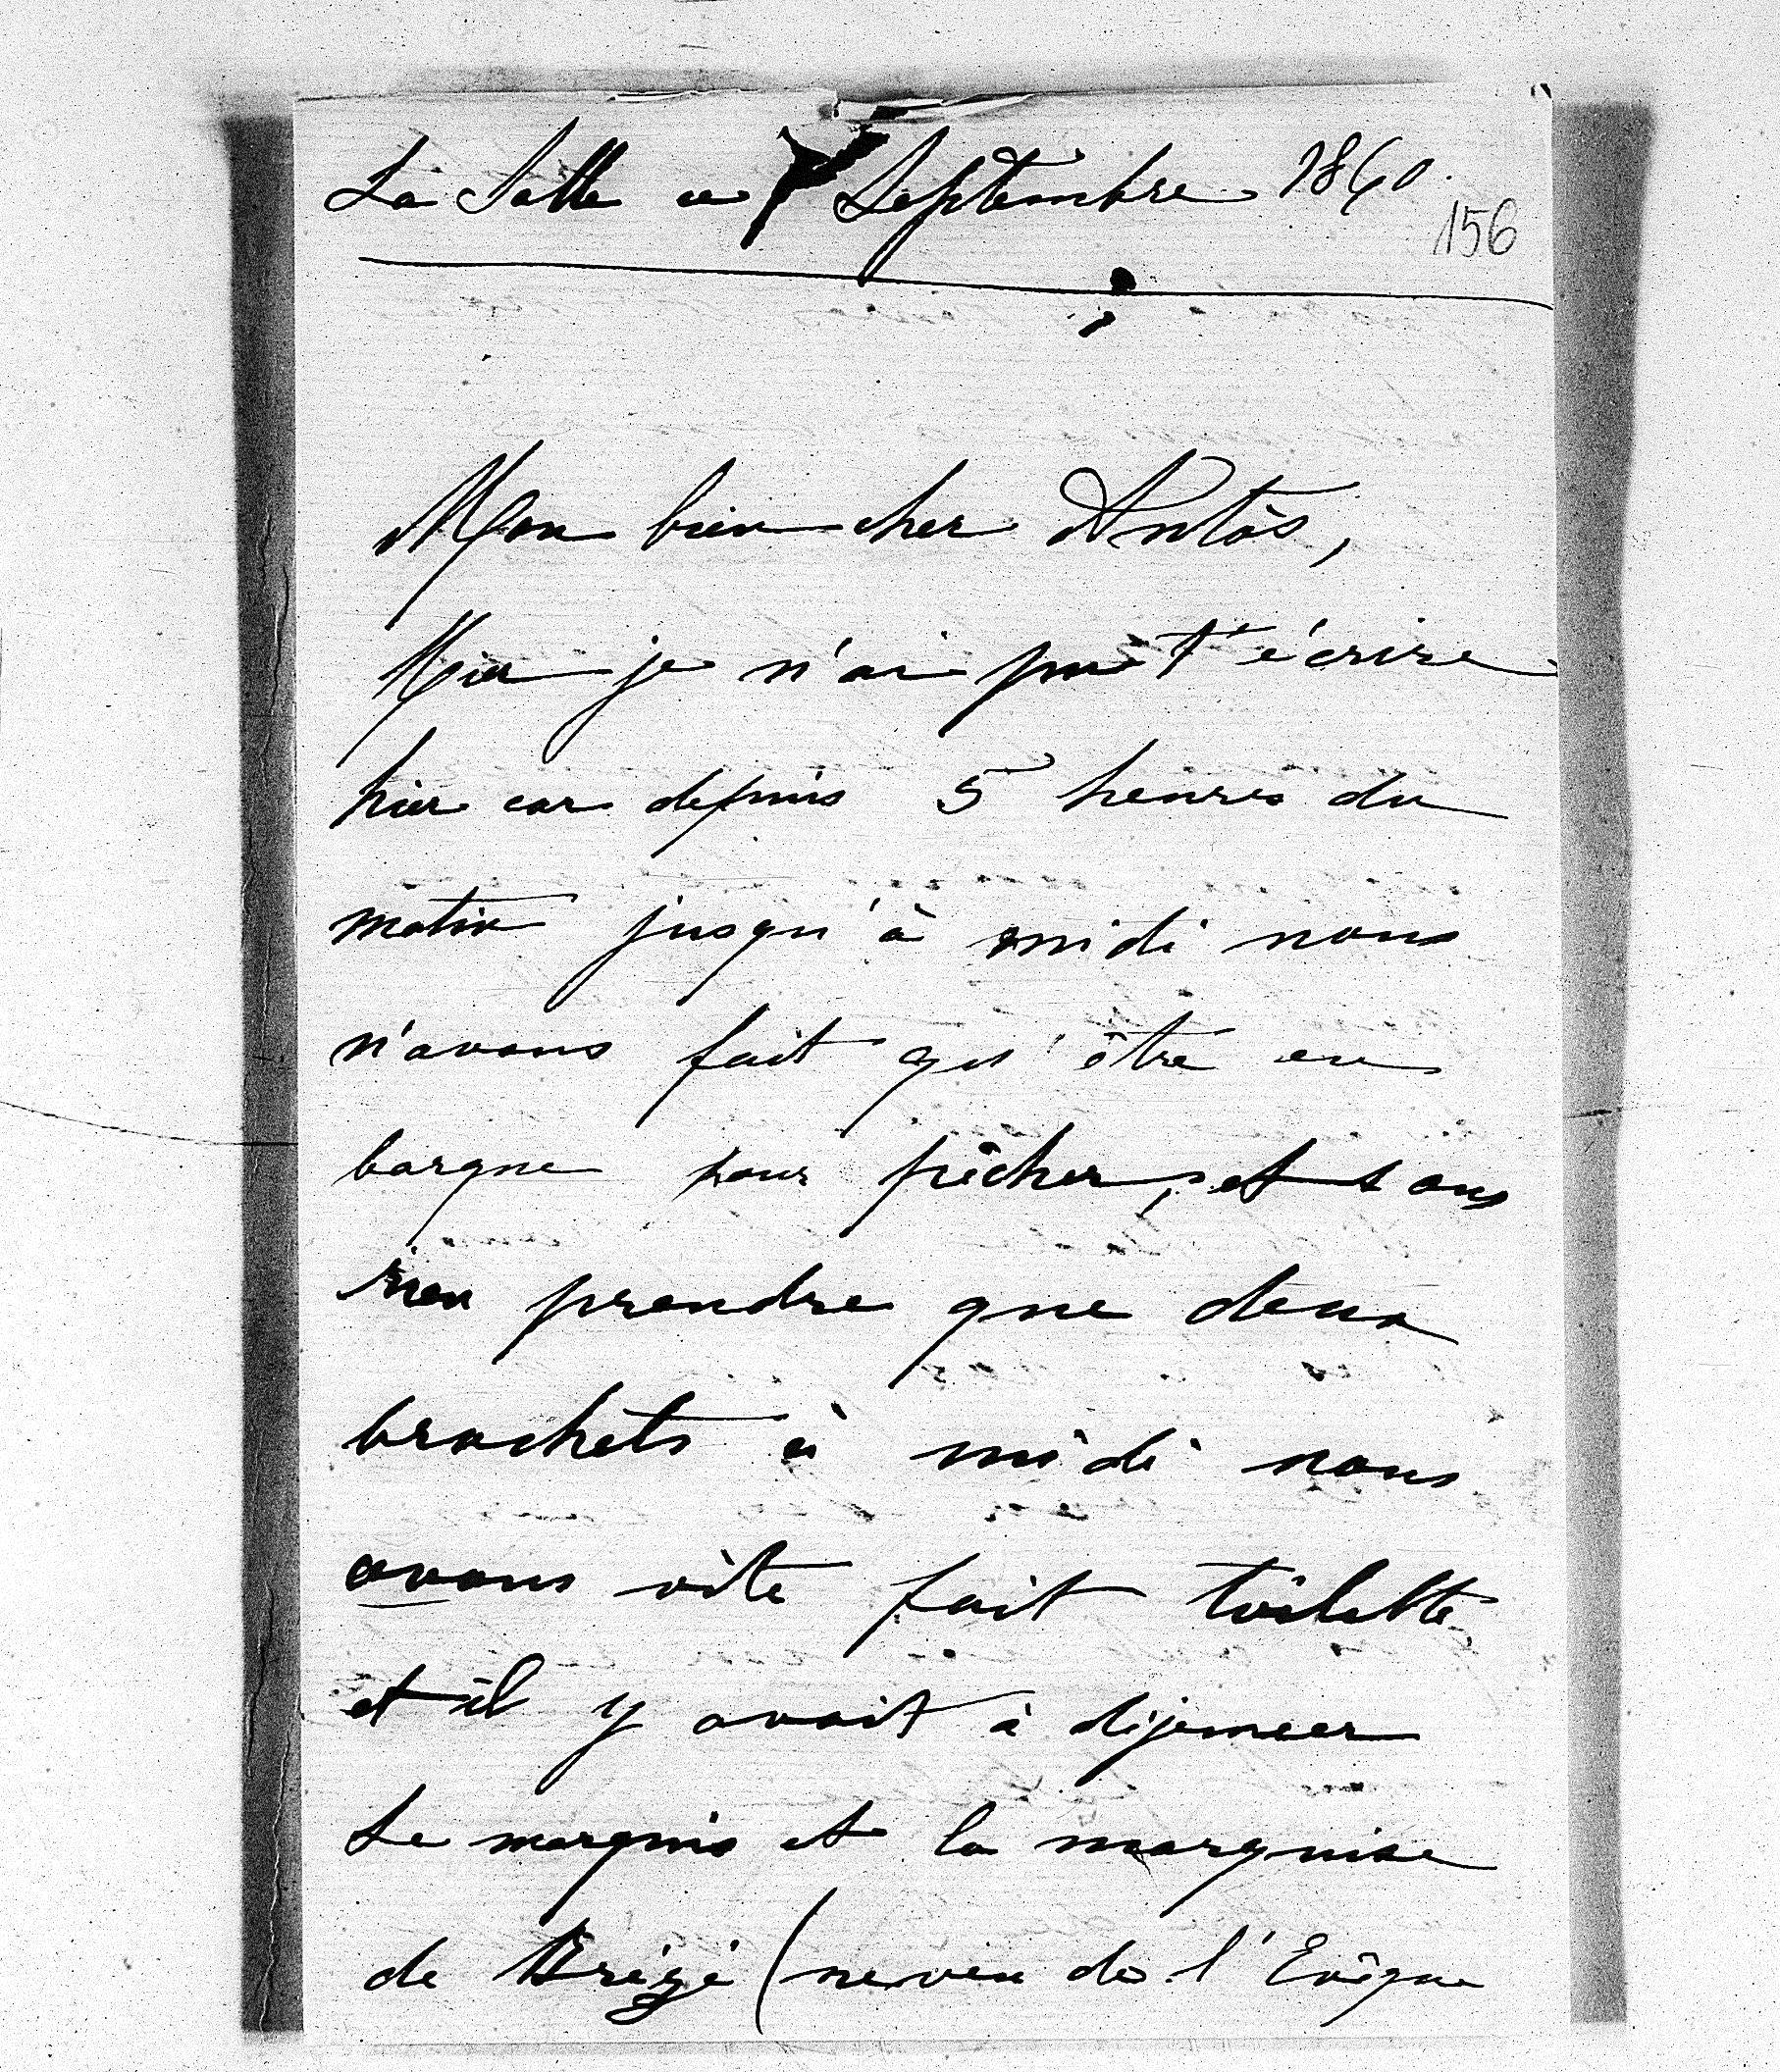 La Salle ce 7 Septembre 1860.
156
Mon bien cher Antos,
Hier je n'ai pu t'écrire
hier car depuis 5 heures du
matin jusqu'à midi nous
n'avons fait qu'être en
barque pour pêcher, et sans
rien prendre que deux
brochets à midi nous
avons vite fait toilette
et il y avait à déjeuner
Le marquis et la marquise
de Brézé (neveu de l'Evêque